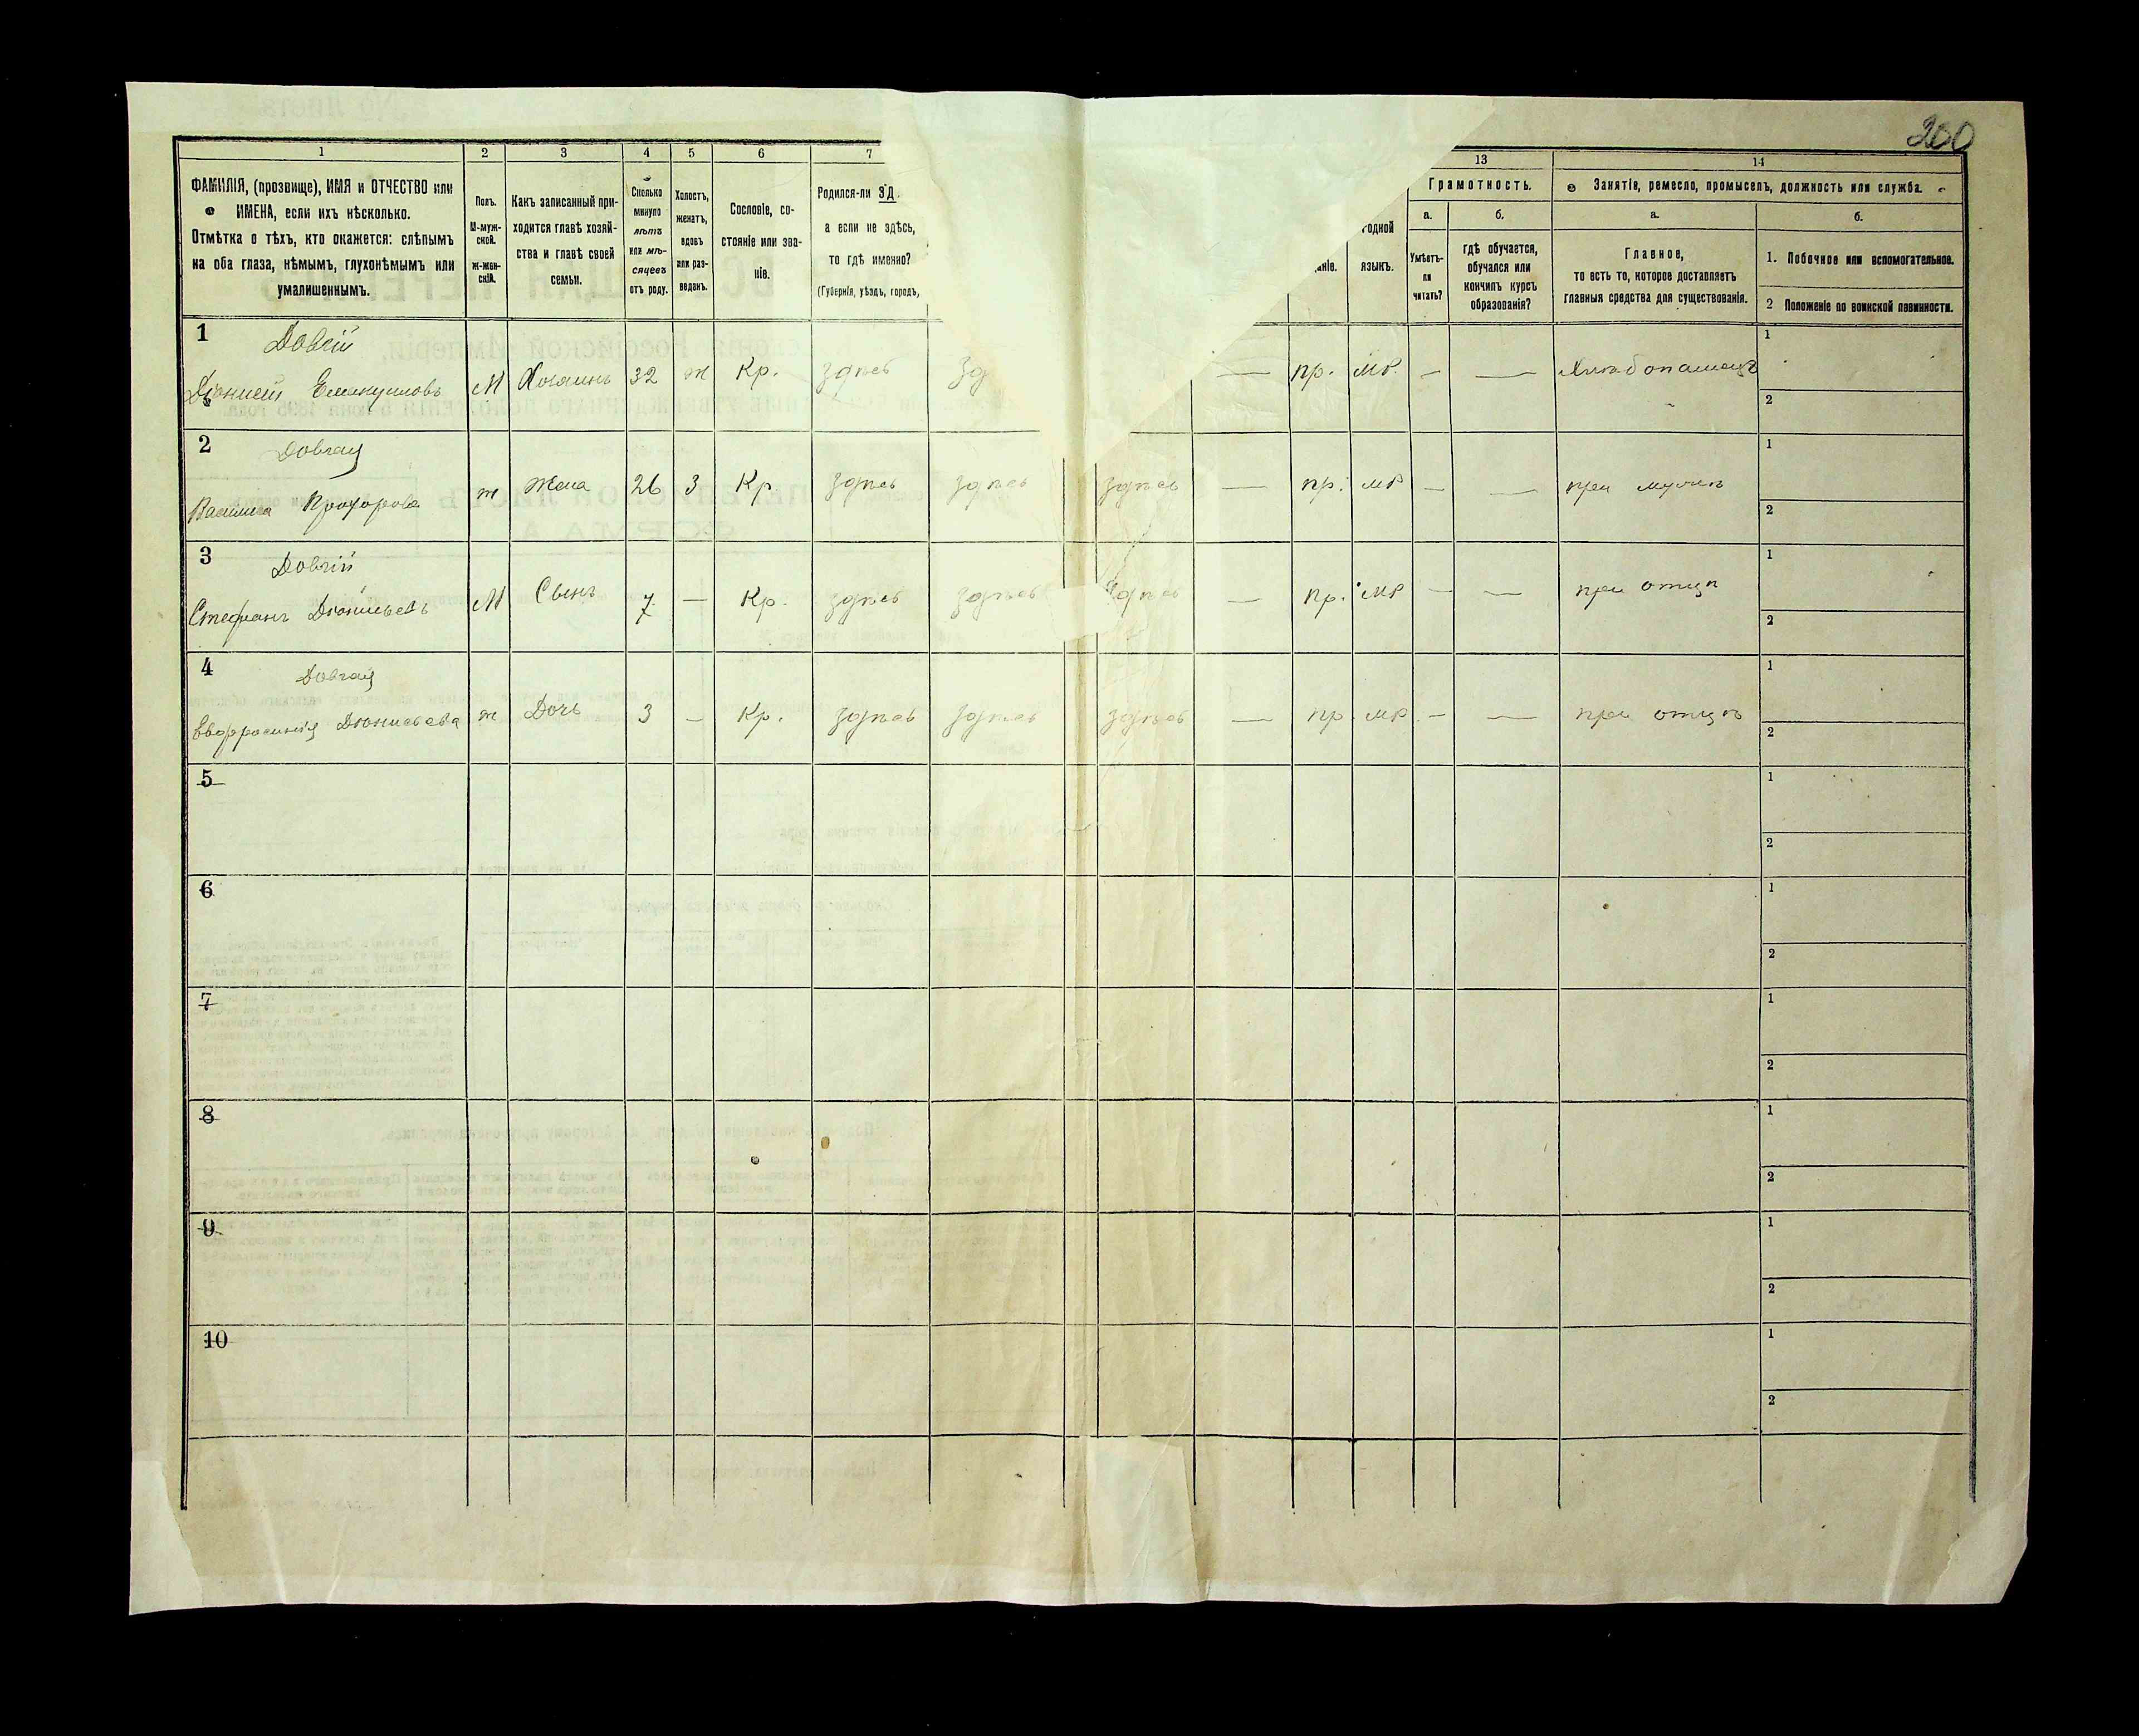 200
1
2
3
4
5
6
7
13
14
ФАМИЛІЯ, (прозвище), ИМЯ и ОТЧЕСТВО или
ИМЕНА, если ихъ нѣсколько.
Отмѣтка о тѣхъ, кто окажется: слѣпымъ
на оба глаза, нѣмымъ, глухонѣмымъ или
умалишеннымъ.
Полъ.
М-муж-
ской.
ж-жен-
скій.
Какъ записанный при-
ходится главѣ хозяй-
ства и главѣ своей
семьи.
Сколько
минуло
лѣтъ
или мѣ-
сяцевъ
отъ роду.
Холостъ,
женатъ,
вдовъ
или раз-
веденъ.
Сословіе, со-
стояніе или зва-
ніе.
Родился-ли ЗД
а если не здѣсь,
то гдѣ именно?
(Губернія, уѣздъ, городъ,
ніе.
одной
языкъ.
Грамотность.
а.
Умѣетъ-
ли
читать?
б.
гдѣ обучается,
обучался или
кончилъ курсъ
образованія?
Занятіе, ремесло, промыселъ, должность или служба.
а.
Главное,
то есть то, которое доставляетъ
главныя средства для существованія.
б.
1. Побочное или вспомогательное.
2 Положеніе по воинской повинности.
1
Довгій
Діонисій
М Хозяинъ 32 ж Кр. здѣсь Зд — пр. мр. — — Хлѣбопашецъ
1
2
2
Довгая
Прохорова
ж Жена 26 З Кр здѣсь здѣсь здѣсь — пр. мр — — при мужѣ
1
2
3
Довгій
Стефанъ Діонисьевъ
М Сынъ 7 — Кр. здѣсь здѣсь здѣсь — пр. мр — — при отцѣ
1
2
4
Довгая
Евфросинія Діонисьева
ж Дочь 3 — Кр. здѣсь здѣсь здѣсь — пр. мр. — — при отцѣ
1
2
5
1
2
6
1
2
7
1
2
8
1
2
9
1
2
10
1
2